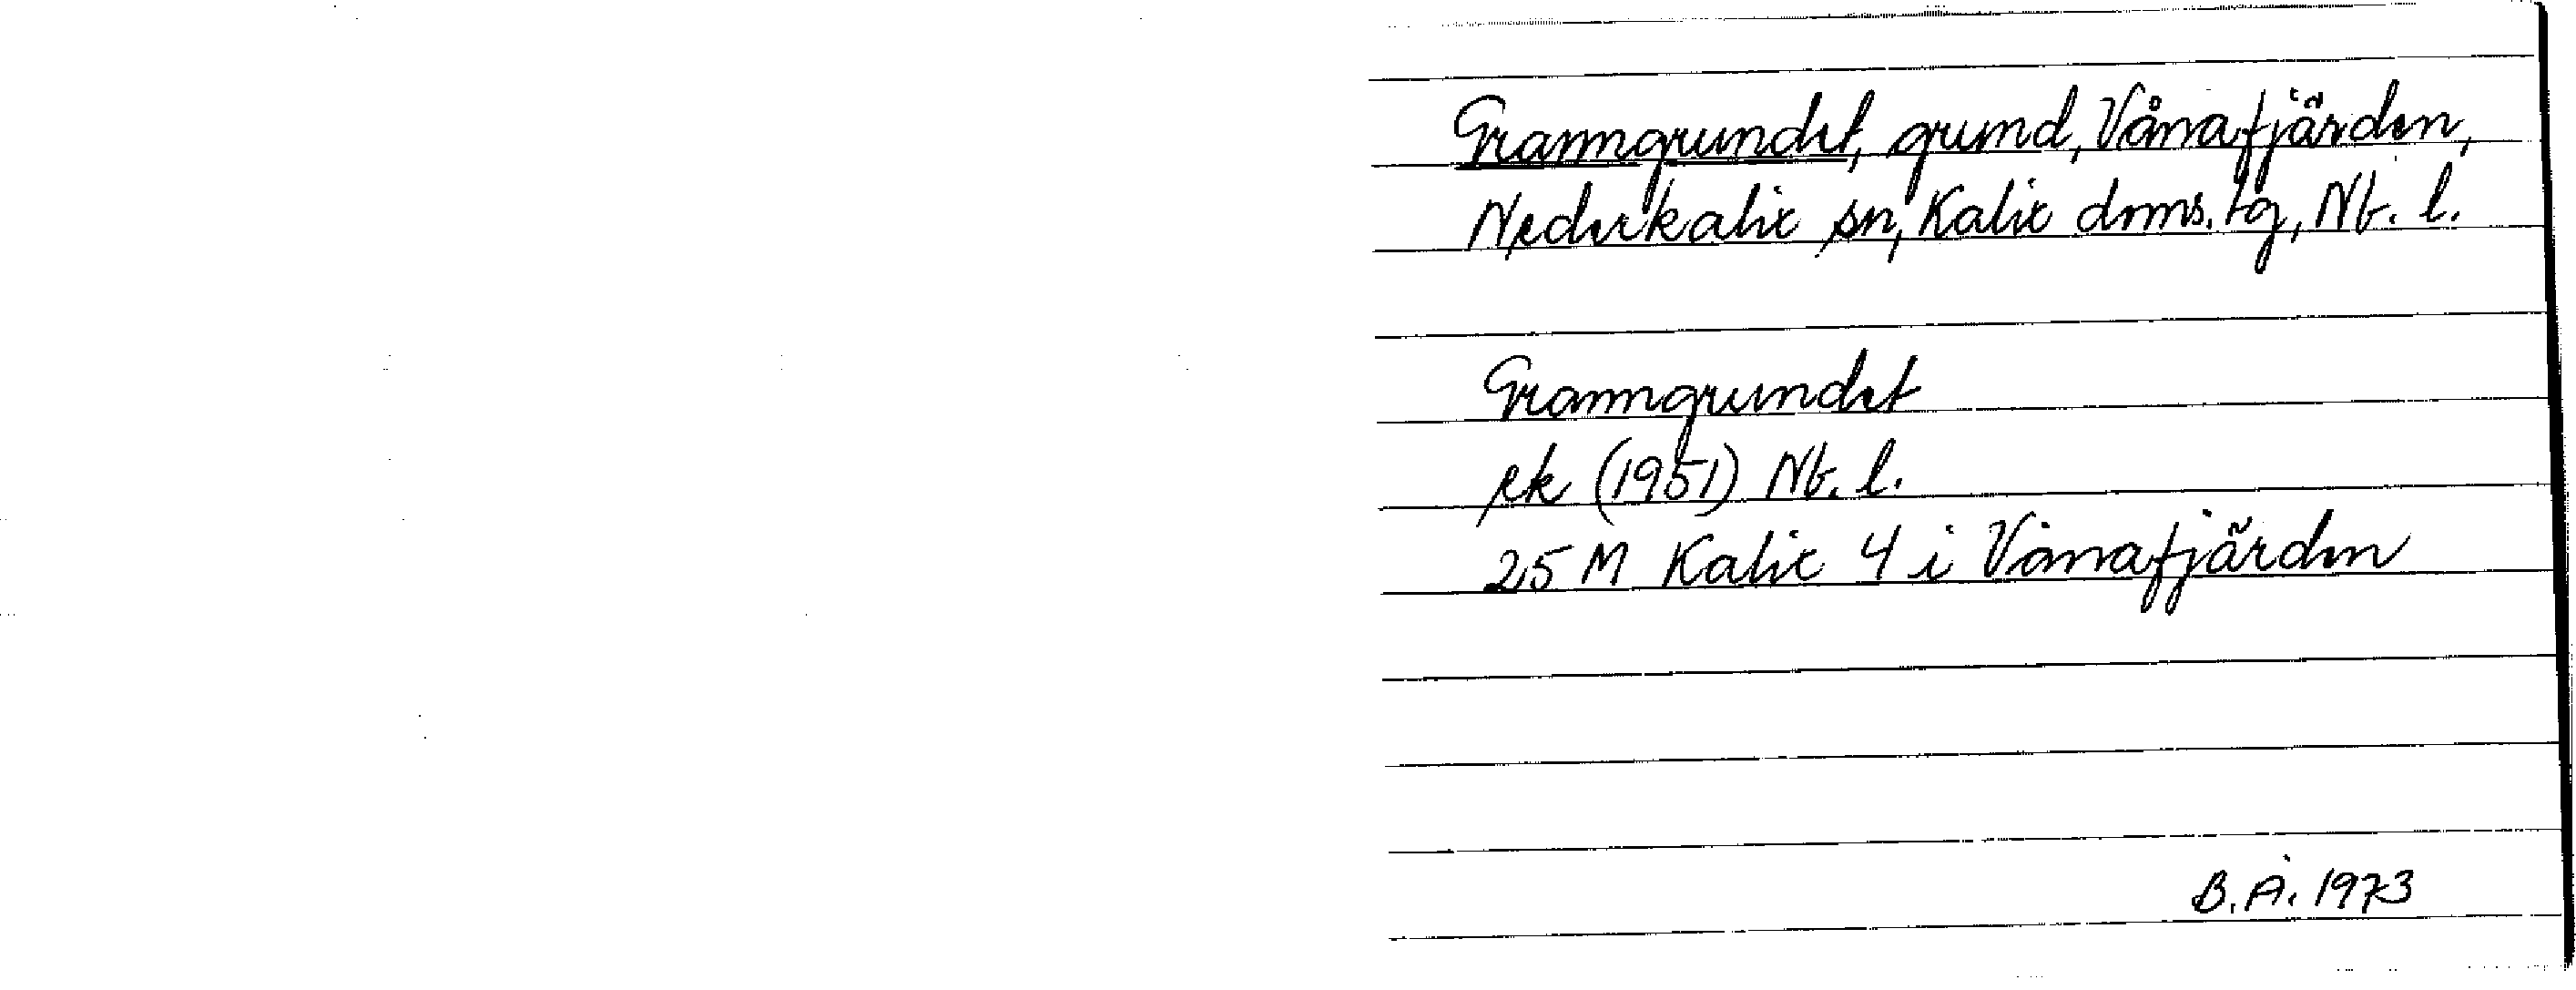 Granngrundet, grund, Vånafjärden,
Nederkalix sn, Kalix dms. tg, Nb. l.
Granngrundet
ek (1951) Nb. l.
25 M Kalix 4 i Vånafjärden
B. Å. 1973